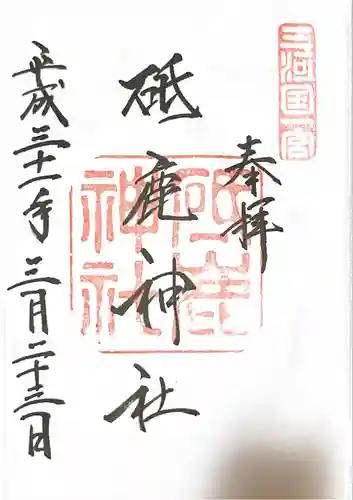 三河国一宮
奉拝
砥鹿神社
砥鹿神社
平成三十一年三月二十三日